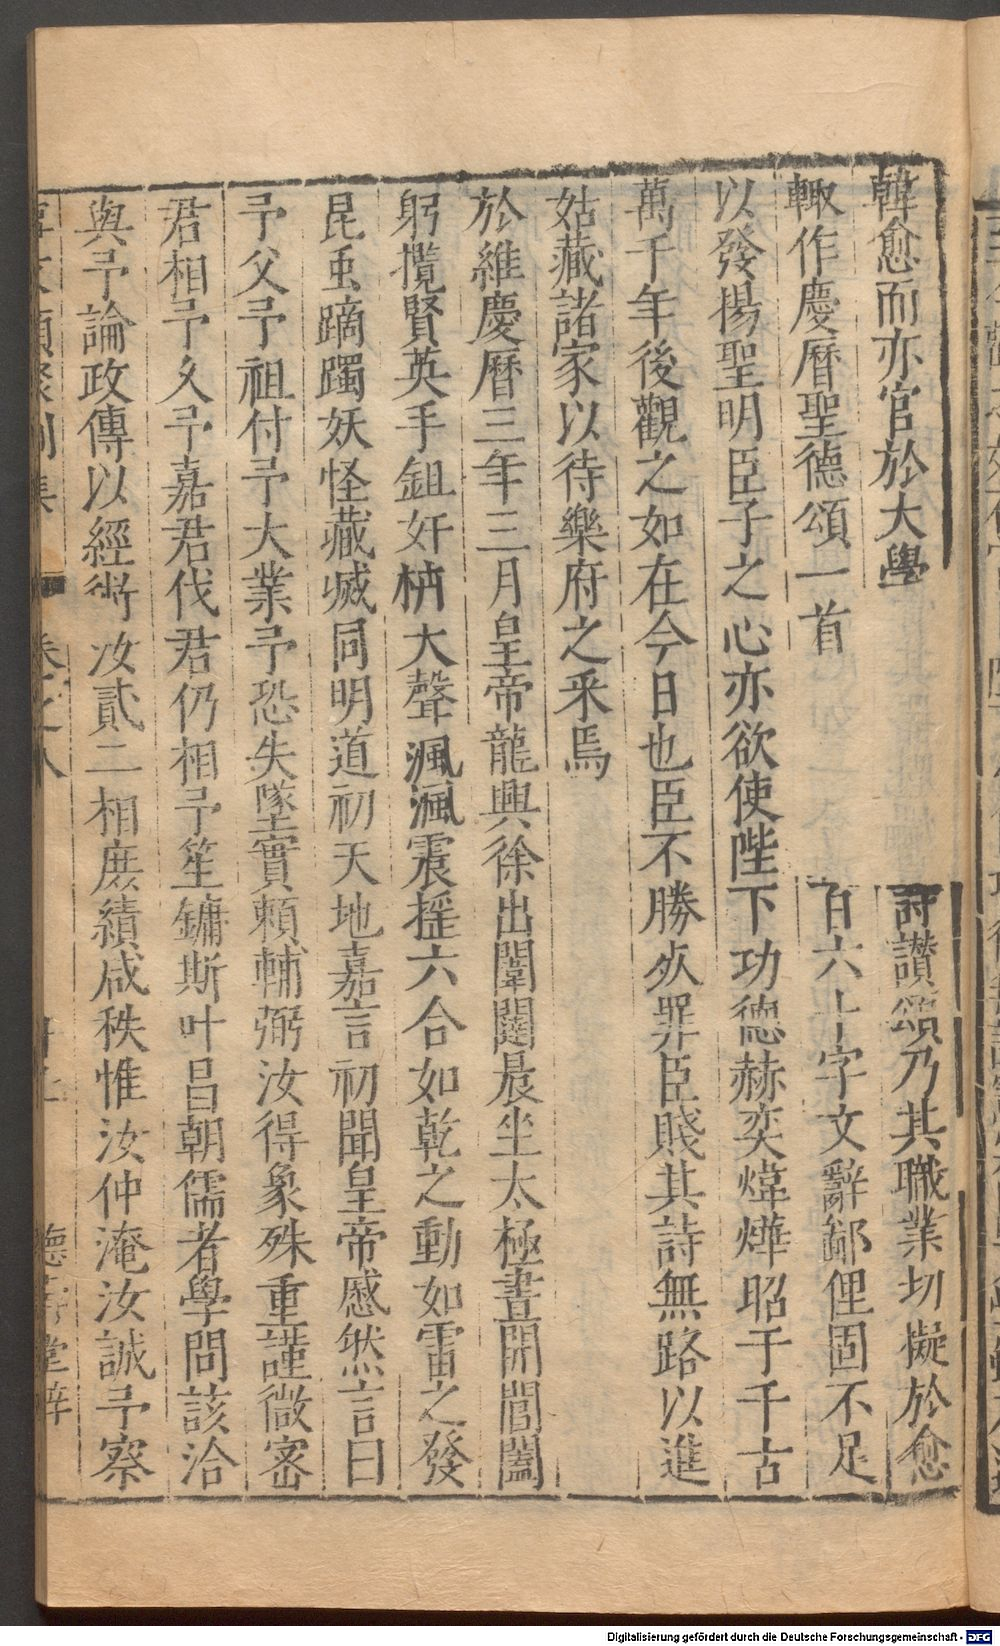 韓愈而亦官於大學 詩讃頌乃其職業切擬於愈
輙作慶曆聖德頌一首 百六十字文辭鄙俚固不足
以發揚聖明臣子之心亦欲使陛下功德赫奕煒燁昭于千古
萬千年後觀之如在今日也臣不勝死罪臣賤其詩無路以進
姑藏諸家以待樂府之采焉
於維慶曆三年三月皇帝龍興徐出闈闥晨坐太極晝開閶闔
躬攬賢英手鉏奸枿大聲渢渢震揺六合如乾之動如雷之發
昆虫蹢躅妖怪藏滅同明道初天地嘉吉初聞皇帝慼然言曰
予父予祖付予大業予恐失墜實頼輔弼汝得象殊重謹微宻
君相予久予嘉君伐君仍相予笙鏞斯叶昌朝儒者學問該洽
與予論政傳以經術汝貳二相庶績咸秩惟汝仲淹汝誠予察
事文類聚别集 卷之八 德壽堂梓
Digitalisierung gefördert durch die Deutsche Forschungsgemeinschaft - DFG